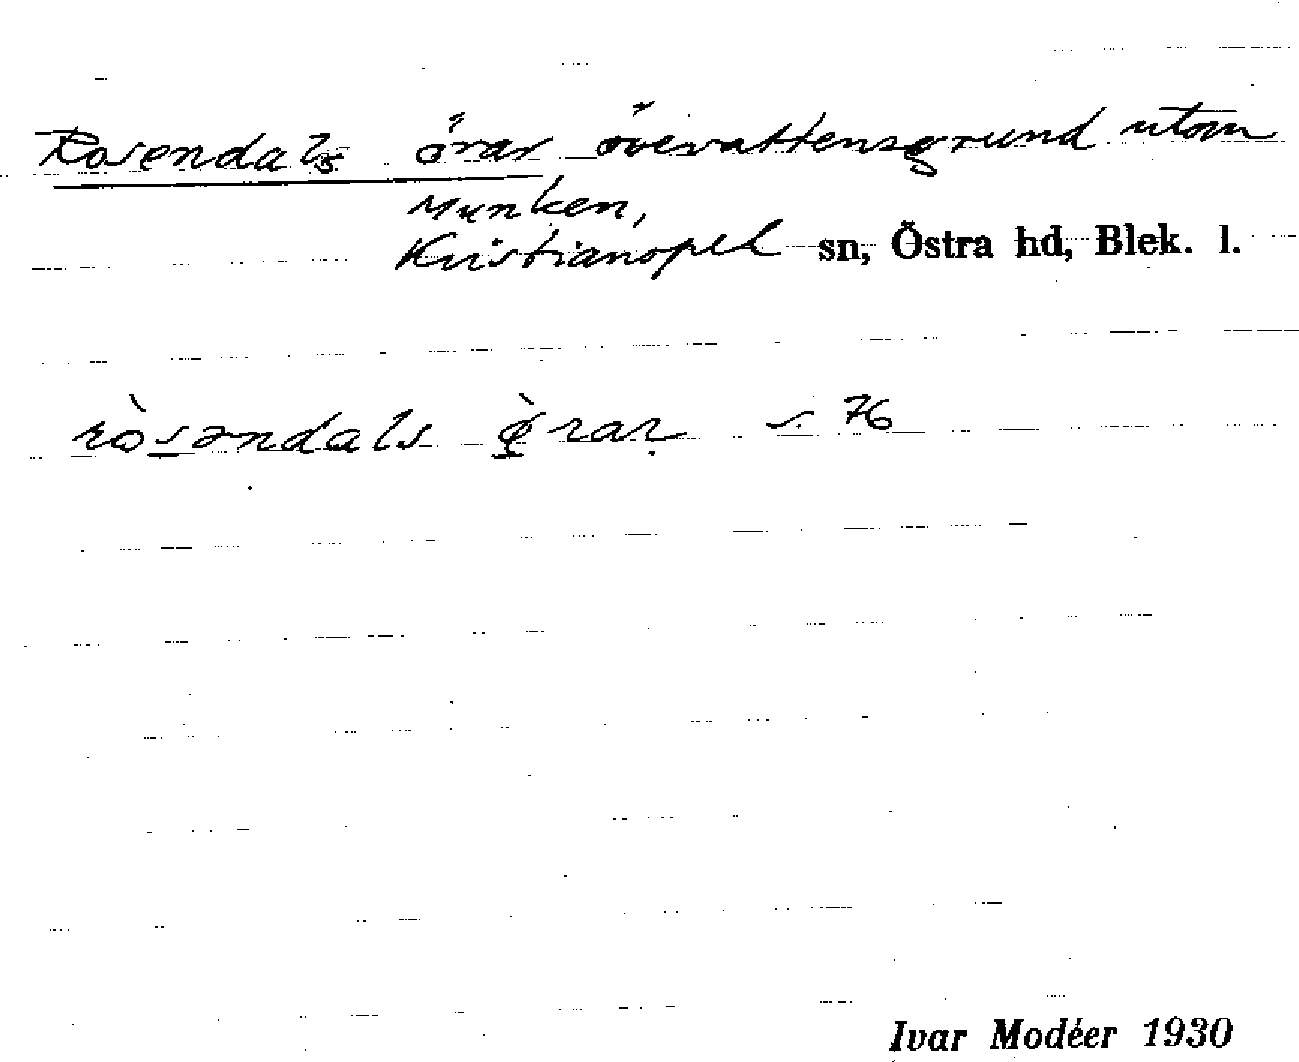 Rosendals örar övervattensgrund utom
Munken,
Kristianopel sn, Östra hd, Blek. l.
ròsəndals ø̀rar s. 76
Ivar Modéer 1930